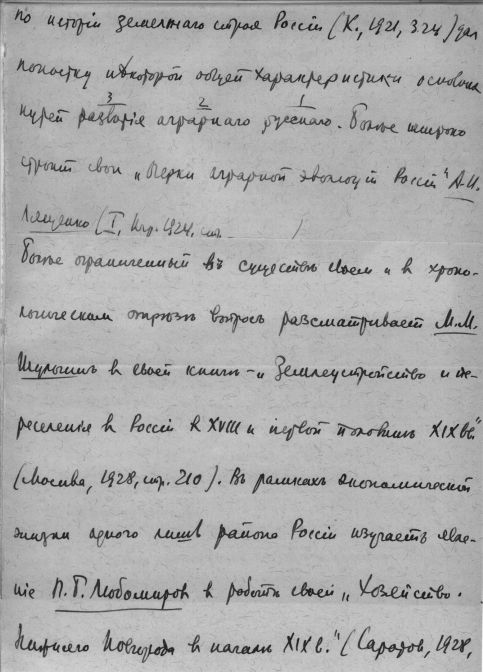 по исторіи земельнаго строя Россіи (К., 1921, 324) дал
попытку нѣкоторой общей характеристики основных
3 2 1
путей развитія аграрнаго русскаго. Болѣе широко
строит свои „Очерки аграрной эволюціи Россіи" А.И.
Лященко (I, Лгр. 1924, стр. )
Болѣе ограниченный въ существѣ своем и в хроно-
логическом отрѣзкѣ вопросъ разсматривает М.М.
Шульгинъ в своей книгѣ - „Землеустройство и пе-
реселенія в Россіи в XVIII и первой половинѣ XIX вв."
(Москва, 1928, стр. 210). Въ рамках экономической
жизни одного лишь района Россіи изучаетъ явле-
ніе П.Г. Любомиров в работѣ своей „Хозяйство
Нижняго Новгорода в началѣ XIX в." (Саратов, 1928,